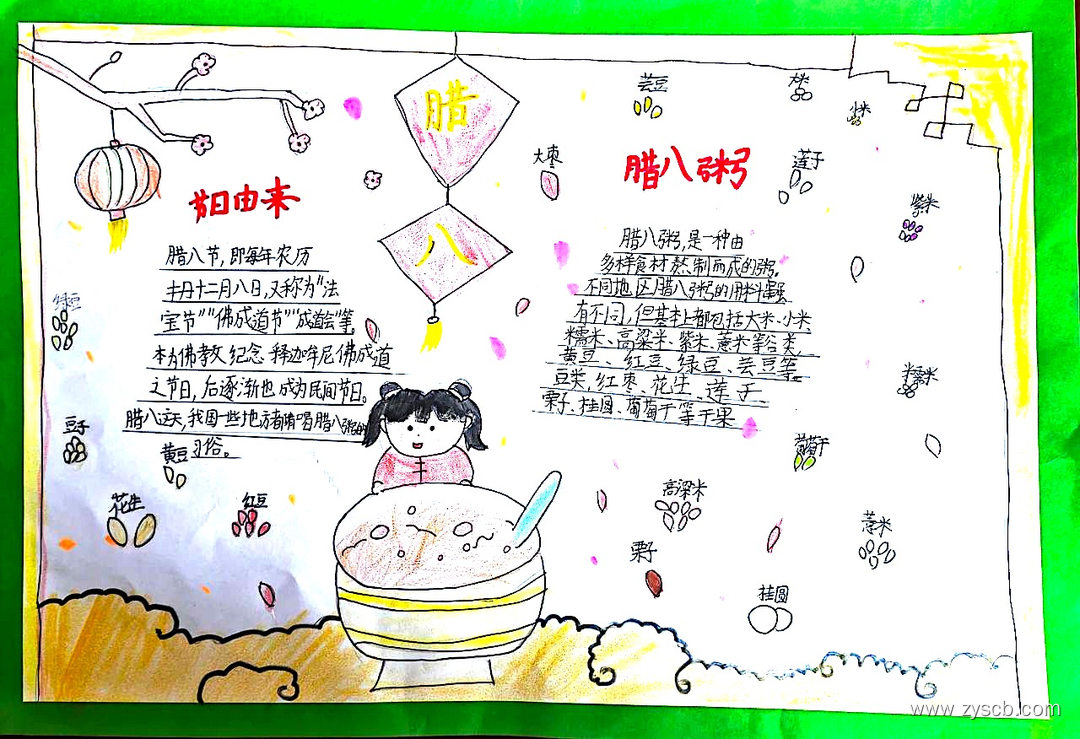 腊
八
节日由来
腊八节,即每年农历
十二月八日,又称为“法
宝节”“佛成道节”“成道会”等,
本为佛教纪念释迦牟尼佛成道
之节日,后逐渐也成为民间节日。
腊八这天,我国一些地方有喝腊八粥的
习俗。
腊八粥
腊八粥,是一种由
多样食材熬制而成的粥。
不同地区腊八粥的用料虽
有不同,但基本上都包括大米、小米
糯米、高粱米、紫米、薏米等谷类,
黄豆、红豆、绿豆、芸豆等
豆类,红枣、花生、莲子、
栗子、桂圆、葡萄干等干果
大枣
芸豆
大米
小米
莲子
紫米
糯米
葡萄干
薏米
高粱米
栗子
桂圆
绿豆
豆子
黄豆
花生
红豆
www.zyscb.com